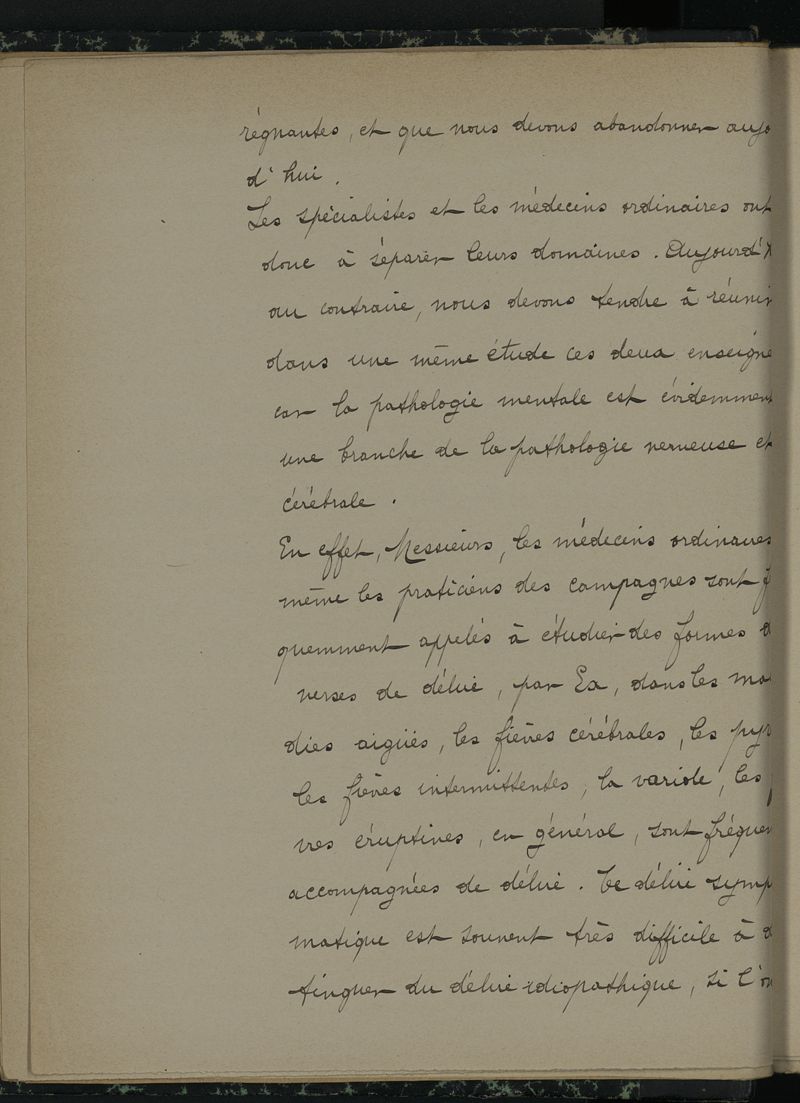 régnantes, et que nous devons abandonner aujo
d'hui.
Les spécialistes et les médecins ordinaires ont
donc à séparer leurs domaines. Aujourd'h
au contraire, nous devons tendre à réunir
dans une même étude ces deux enseigne
car la pathologie mentale est évidemment
une branche de la pathologie nerveuse et
cérébrale.
En effet, Messieurs, les médecins ordinaires
même les praticiens des campagnes sont f
quemment appelés à étudier des formes d
verses de délire, par Ex, dans les mala
dies aigües, les fièvres cérébrales, les pyr
les fièvres intermittentes, la variole, les f
vres éruptives, en général, sont fréquem
accompagnées de délire. Ce délire symp
matique est souvent très difficile à d
tinguer du délire idiopathique, si l'on